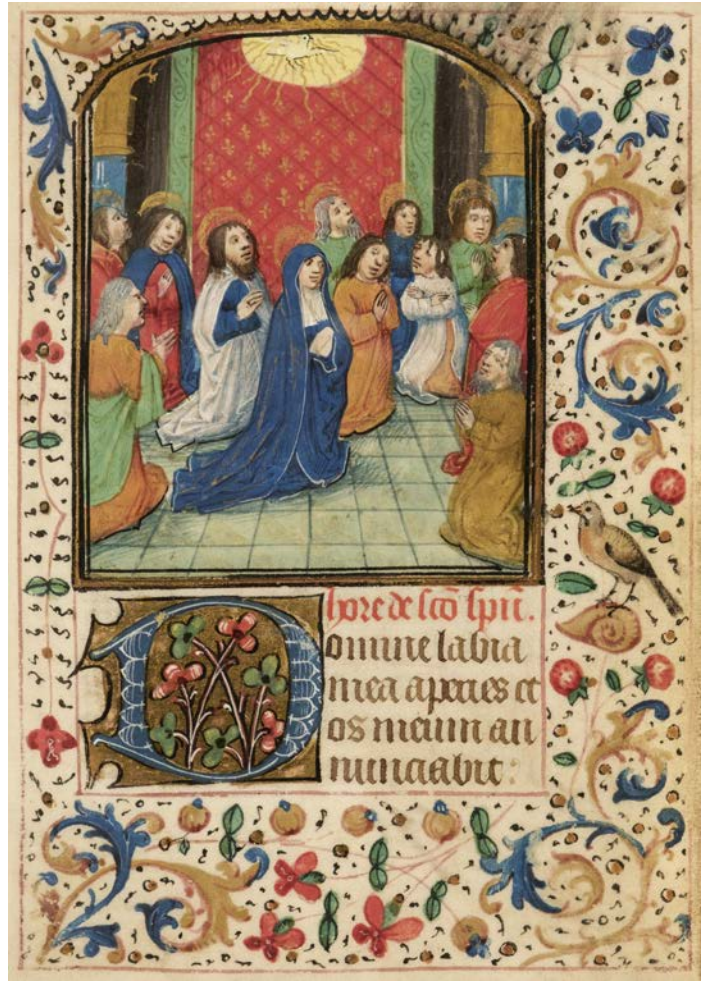 hore de sco spu.
Domine labia
mea aperies et
os meum an
nunciabit: